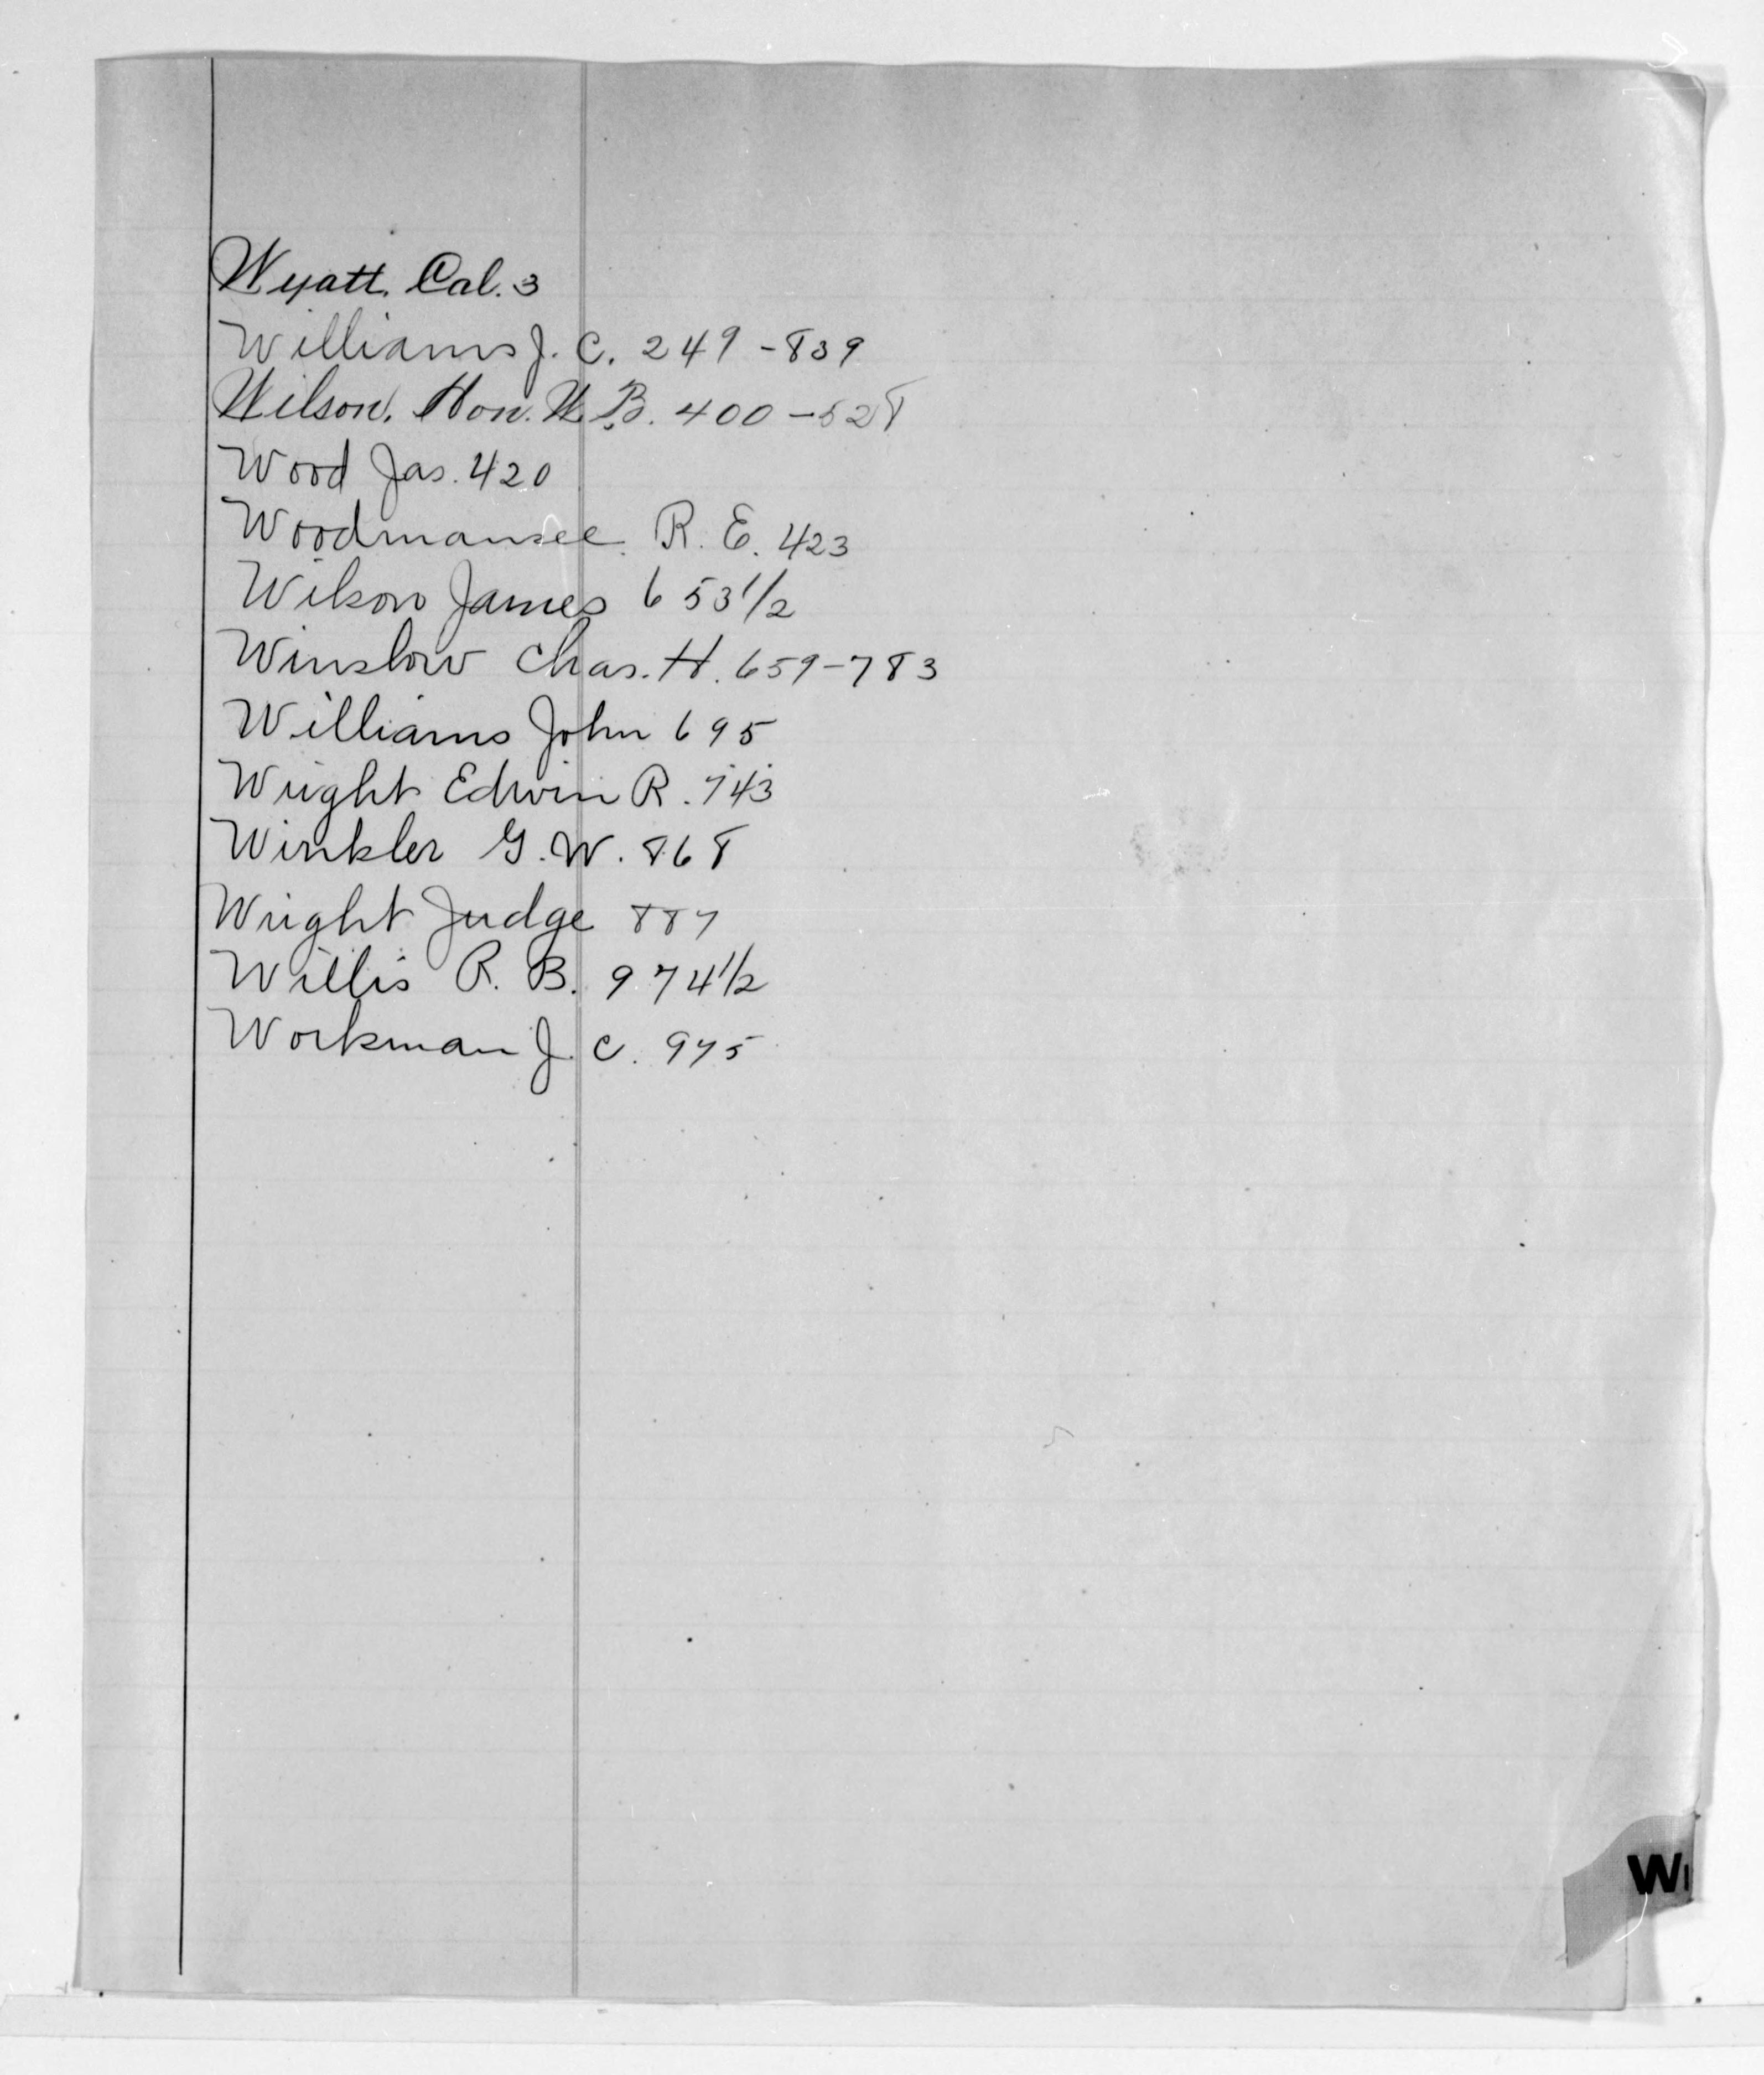 Wyatt, Cal. 3
Williams J. C. 249-839
Wilson, Hon. W. B. 400-528
Wood Jas. 420
Woodmansee R. E. 423
Wilson James 653 1/2
Winslow Chas. H. 659-783
Williams John 695
Wright Edwin R. 743
Winkler G. W. 868
Wright Judge 887
Willis R. B. 974 1/2
Workman J. C. 975
W